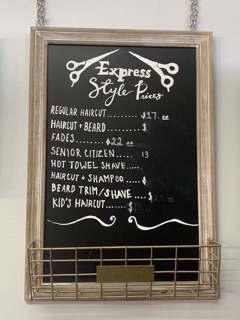 Express
Style Prices
REGULAR HAIRCUT......... $17.00
HAIRCUT + BEARD......... $
FADES........ $22.00
SENIOR CITIZEN..... 13
HOT TOWEL SHAVE.....
HAIRCUT + SHAMPOO..... $
BEARD TRIM/SHAVE.... $
KID'S HAIRCUT...... $